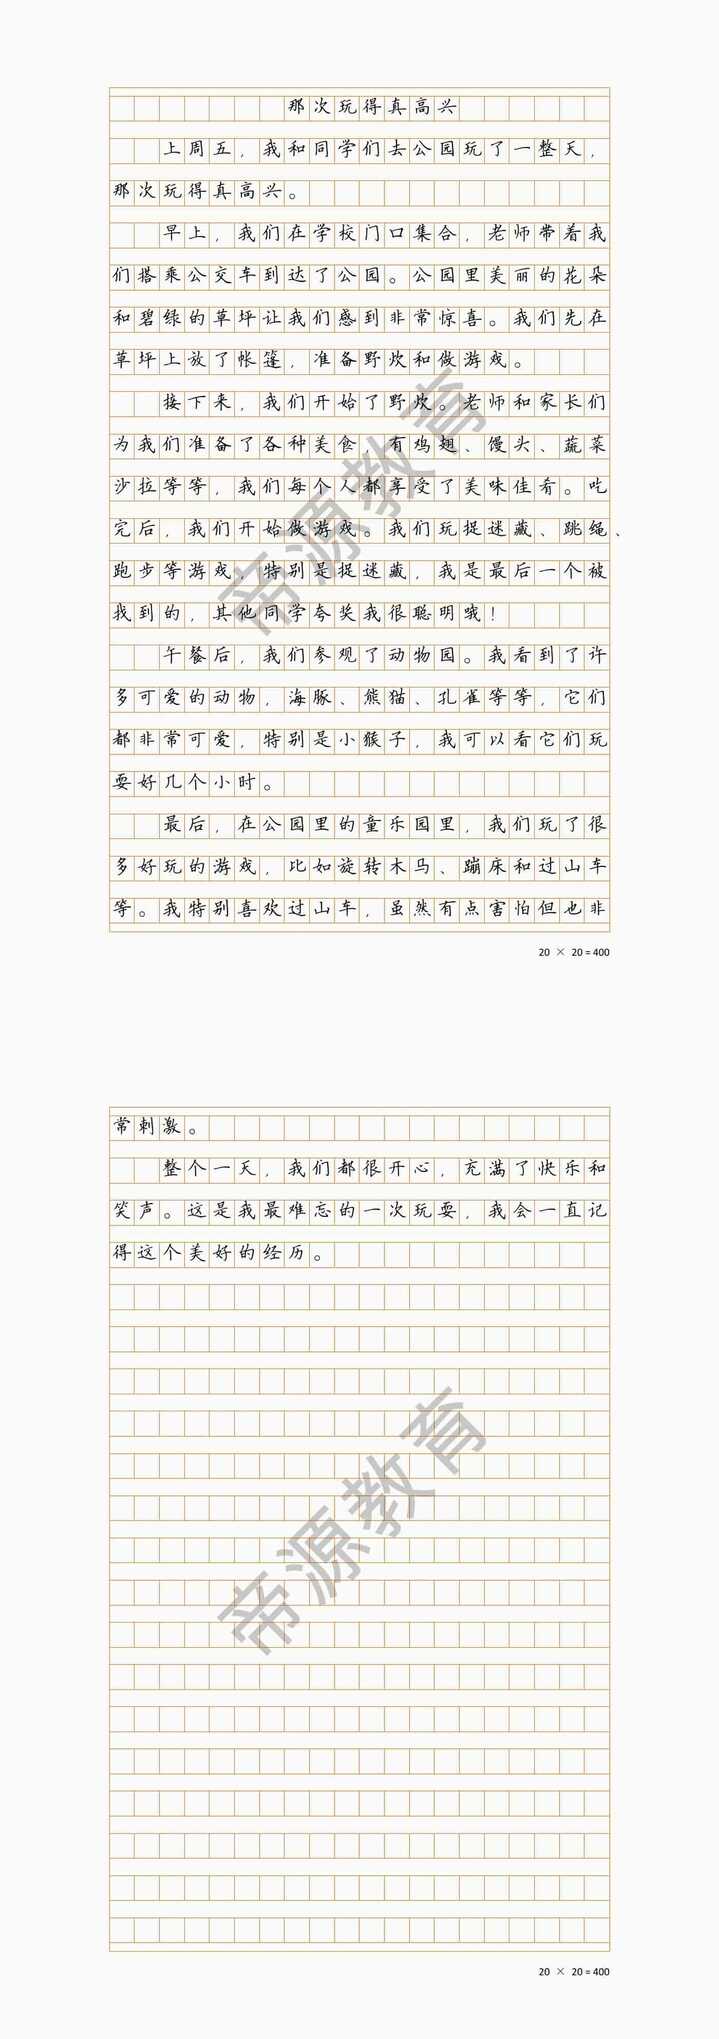 那次玩得真高兴
上周五，我和同学们去公园玩了一整天，
那次玩得真高兴。
早上，我们在学校门口集合，老师带着我
们搭乘公交车到达了公园。公园里美丽的花朵
和碧绿的草坪让我们感到非常惊喜。我们先在
草坪上放了帐篷，准备野炊和做游戏。
接下来，我们开始了野炊。老师和家长们
为我们准备了各种美食，有鸡翅、馒头、蔬菜
沙拉等等，我们每个人都享受了美味佳肴。吃
完后，我们开始做游戏。我们玩捉迷藏、跳绳、
跑步等游戏，特别是捉迷藏，我是最后一个被
找到的，其他同学夸奖我很聪明哦！
午餐后，我们参观了动物园。我看到了许
多可爱的动物，海豚、熊猫、孔雀等等，它们
都非常可爱，特别是小猴子，我可以看它们玩
耍好几个小时。
最后，在公园里的童乐园里，我们玩了很
多好玩的游戏，比如旋转木马、蹦床和过山车
等。我特别喜欢过山车，虽然有点害怕但也非
20 × 20 = 400
常刺激。
整个一天，我们都很开心，充满了快乐和
笑声。这是我最难忘的一次玩耍，我会一直记
得这个美好的经历。
20 × 20 = 400
帝源教育
帝源教育